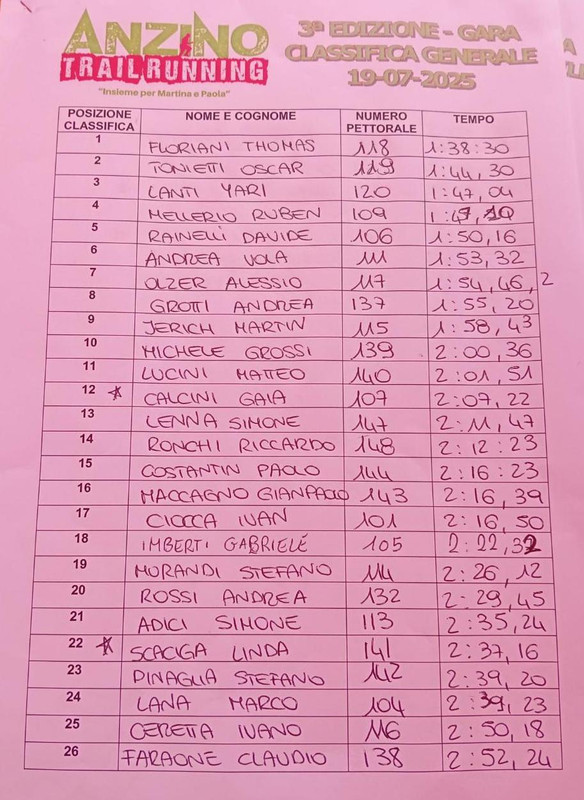 ANZINO
TRAIL RUNNING
"Insieme per Martina e Paola"
3ª EDIZIONE - GARA
CLASSIFICA GENERALE
19-07-2025
POSIZIONE CLASSIFICA NOME E COGNOME NUMERO PETTORALE TEMPO
1 FLORIANI THOMAS 118 1:38:30
2 TONIETTI OSCAR 119 1:44,30
3 LANTI YARI 120 1:47,04
4 MELLERIO RUBEN 109 1:47,10
5 RAINELLI DAVIDE 106 1:50,16
6 ANDREA VOLA 111 1:53,32
7 OLZER ALESSIO 117 1:54,46,2
8 GROTTI ANDREA 137 1:55,20
9 JERICH MARTIN 115 1:58,43
10 MICHELE GROSSI 139 2:00,36
11 LUCINI MATTEO 140 2:01,51
12 ☆ CALCINI GAIA 107 2:07,22
13 LENNA SIMONE 147 2:11,47
14 RONCHI RICCARDO 148 2:12:23
15 COSTANTIN PAOLO 144 2:16:23
16 MACCAGNO GIANPAOLO 143 2:16,39
17 CIOCCA IVAN 101 2:16,50
18 IMBERTI GABRIELE 105 2:22,32
19 MORANDI STEFANO 114 2:26,12
20 ROSSI ANDREA 132 2:29,45
21 ADICI SIMONE 113 2:35,24
22 ☆ SCACIGA LINDA 141 2:37,16
23 PINAGLIA STEFANO 142 2:39,20
24 LANA MARCO 104 2:39,23
25 CERETTA IVANO 116 2:50,18
26 FARAONE CLAUDIO 138 2:52,24